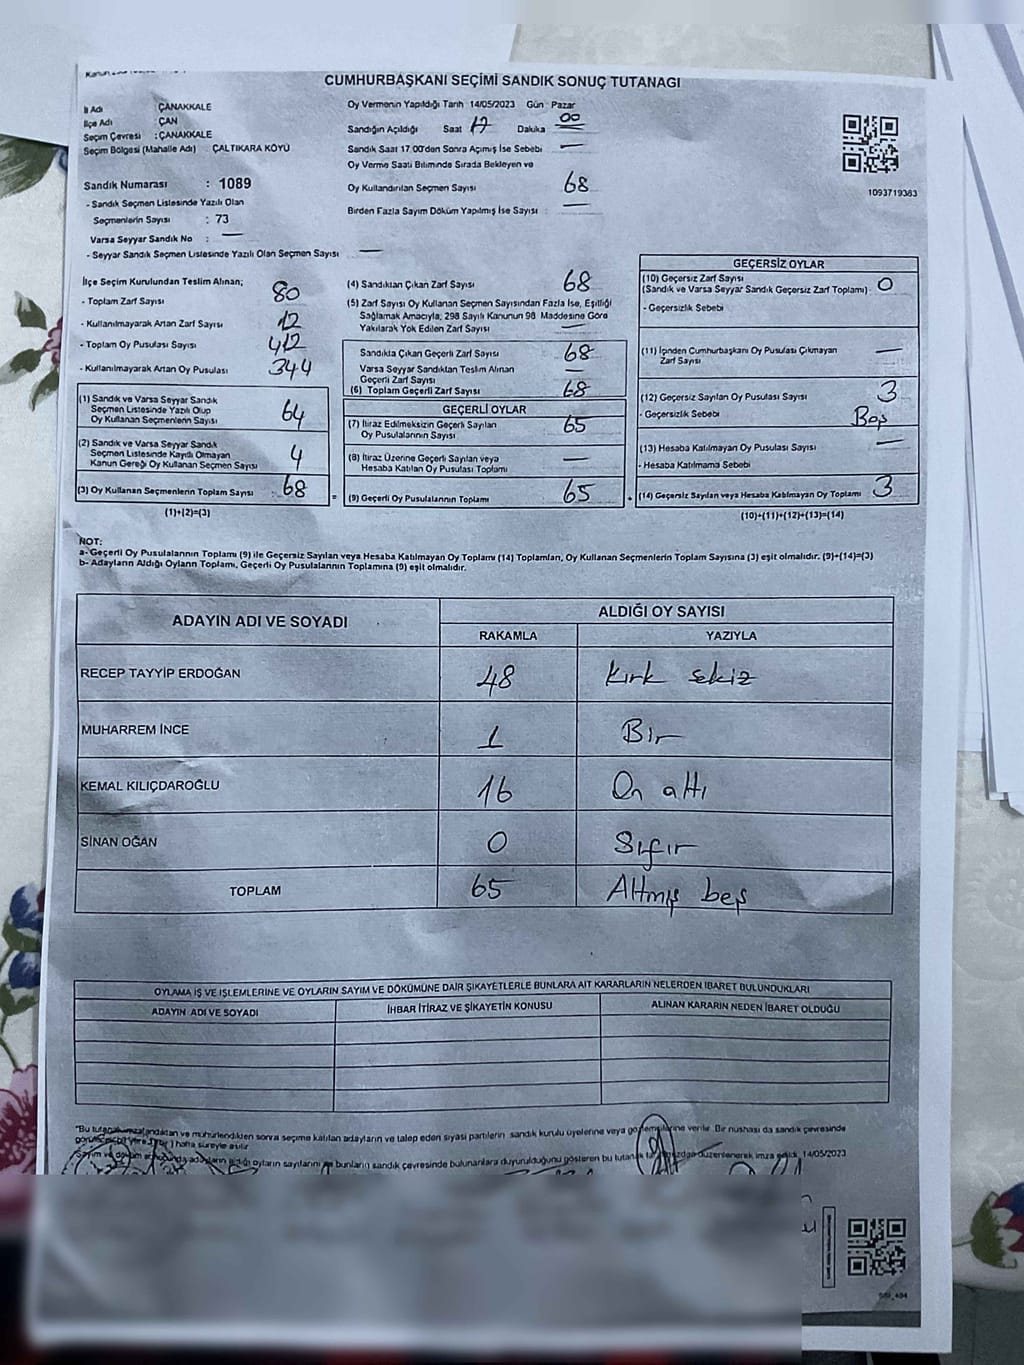 CUMHURBAŞKANI SEÇİMİ SANDIK SONUÇ TUTANAGI
İl Adı ÇANAKKALE
İlçe Adı ÇAN
Seçim Çevresi : ÇANAKKALE
Seçim Bölgesi (Mahalle Adı) ÇALTIKARA KÖYÜ
Sandık Numarası : 1089
- Sandık Seçmen Listesinde Yazılı Olan
Seçmenlerin Sayısı : 73
Varsa Seyyar Sandık No : —
- Seyyar Sandık Seçmen Listesinde Yazılı Olan Seçmen Sayısı —
Oy Vermenin Yapıldığı Tarih 14/05/2023 Gün Pazar
Sandığın Açıldığı Saat 17 Dakika 00
Sandık Saat 17 00'den Sonra Açımış İse Sebebi —
Oy Verme Saati Bitiminde Sırada Bekleyen ve
Oy Kullandırılan Seçmen Sayısı 68
Birden Fazla Sayım Döküm Yapılmış İse Sayısı : —
1093719383
İlçe Seçim Kurulundan Teslim Alınan;
- Toplam Zarf Sayısı 80
- Kullanılmayarak Artan Zarf Sayısı 12
- Toplam Oy Pusulası Sayısı 412
- Kullanılmayarak Artan Oy Pusulası 344
(1) Sandık ve Varsa Seyyar Sandık
Seçmen Listesinde Yazılı Olup
Oy Kullanan Seçmenlerin Sayısı 64
(2) Sandık ve Varsa Seyyar Sandık
Seçmen Listesinde Kayıtlı Olmayan
Kanun Gereği Oy Kullanan Seçmen Sayısı 4
(3) Oy Kullanan Seçmenlerin Toplam Sayısı 68
(1)+(2)=(3)
(4) Sandıktan Çıkan Zarf Sayısı 68
(5) Zarf Sayısı Oy Kullanan Seçmen Sayısından Fazla İse, Eşitliği
Sağlamak Amacıyla; 298 Sayılı Kanunun 98 Maddesine Göre
Yakılarak Yok Edilen Zarf Sayısı —
Sandıkta Çıkan Geçerli Zarf Sayısı 68
Varsa Seyyar Sandıktan Teslim Alınan
Geçerli Zarf Sayısı —
(6) Toplam Geçerli Zarf Sayısı 68
GEÇERLİ OYLAR
(7) İtiraz Edilmeksizin Geçerli Sayılan
Oy Pusulalarının Sayısı 65
(8) İtiraz Üzerine Geçerli Sayılan veya
Hesaba Katılan Oy Pusulası Toplamı —
= (9) Geçerli Oy Pusulalarının Toplamı 65
GEÇERSİZ OYLAR
(10) Geçersiz Zarf Sayısı
(Sandık ve Varsa Seyyar Sandık Geçersiz Zarf Toplamı) 0
- Geçersizlik Sebebi
(11) İçinden Cumhurbaşkanı Oy Pusulası Çıkmayan
Zarf Sayısı —
(12) Geçersiz Sayılan Oy Pusulası Sayısı 3
- Geçersizlik Sebebi Boş
(13) Hesaba Katılmayan Oy Pusulası Sayısı —
- Hesaba Katılmama Sebebi
+ (14) Geçersiz Sayılan veya Hesaba Katılmayan Oy Toplamı 3
(10)+(11)+(12)+(13)=(14)
NOT:
a- Geçerli Oy Pusulalarının Toplamı (9) ile Geçersiz Sayılan veya Hesaba Katılmayan Oy Toplamı (14) Toplamları, Oy Kullanan Seçmenlerin Toplam Sayısına (3) eşit olmalıdır. (9)+(14)=(3)
b- Adayların Aldığı Oyların Toplamı, Geçerli Oy Pusulalarının Toplamına (9) eşit olmalıdır.
ADAYIN ADI VE SOYADI ALDIĞI OY SAYISI
RAKAMLA YAZIYLA
RECEP TAYYİP ERDOĞAN 48 Kırk sekiz
MUHARREM İNCE 1 Bir
KEMAL KILIÇDAROĞLU 16 On altı
SİNAN OĞAN 0 Sıfır
TOPLAM 65 Altmış beş
OYLAMA İŞ VE İŞLEMLERİNE VE OYLARIN SAYIM VE DÖKÜMÜNE DAİR ŞİKAYETLERLE BUNLARA AİT KARARLARIN NELERDEN İBARET BULUNDUKLARI
ADAYIN ADI VE SOYADI İHBAR İTİRAZ VE ŞİKAYETİN KONUSU ALINAN KARARIN NEDEN İBARET OLDUĞU
"Bu tutanak imzalandıktan ve mühürlendikten sonra seçime katılan adayların ve talep eden siyasi partilerin sandık kurulu üyelerine veya gözlemcilerine verilir. Bir nüshası da sandık çevresinde
hafta süreyle asılır
Sayım ve döküm adayların aldığı oyların sayılarını ve bunların sandık çevresinde bulunanlara duyurulduğunu gösteren bu tutanak düzenlenerek imza edildi. 14/05/2023